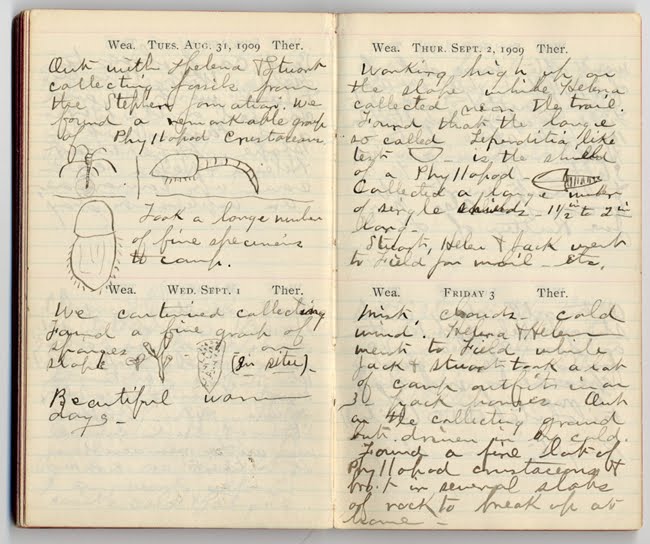 Wea. TUES. AUG. 31, 1909 Ther.
Out with Helena & Stuart
collecting fossils from
the Stephen formation. We
found a remarkable group
of Phyllopod Crustaceans
Took a large number
of fine specimens
to camp.
Wea. WED. SEPT. 1 Ther.
We continued collecting
Found a fine group of
sponges on
slope (in situ)_
Beautiful warm
days_
Wea. THUR. SEPT. 2, 1909 Ther.
Working high up on
the slope while Helena
collected near the trail.
Found that the large
so called Leperditia like
test is the shield
of a Phyllopod_
Collected a large number
of single shields_ 1 1/2 in to 2 in
long_
Stuart, Helen & Jack went
to Field for mail_ etc.
Wea. FRIDAY 3 Ther.
Mist, clouds_ cold
wind. Helena & Helen
went to Field while
Jack & Stuart took a lot
of camp outfits in on
3 pack horses. Out
on the collecting ground
but driven in by cold.
Found a fine lot of
Phyllopod crustaceans &
bro't in several slabs
of rock to break up at
home_